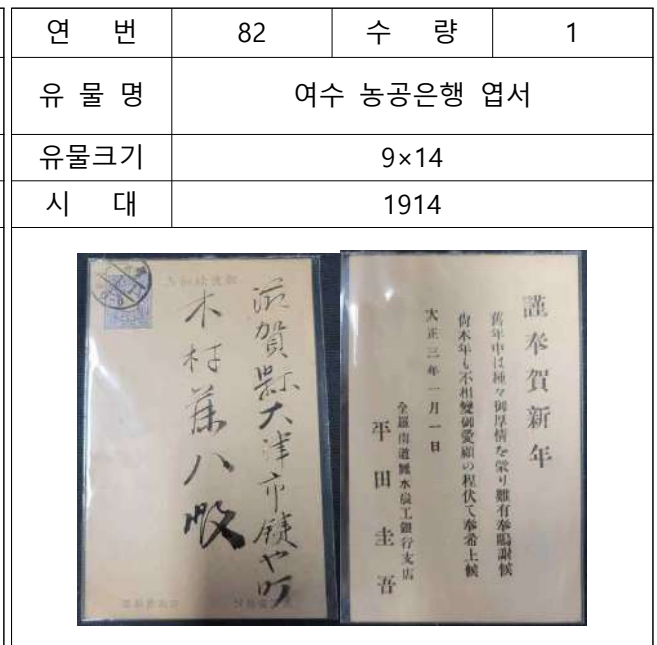 연 번 82 수 량 1
유 물 명 여수 농공은행 엽서
유물크기 9×14
시 대 1914
滋賀県大津市鍵や町
木村蕉八殿
謹奉賀新年
舊年中は種々御厚情を蒙り難有奉鳴謝候
尙本年も不相變御愛顧の程伏て奉希上候
大正三年一月一日
全羅南道麗水農工銀行支店
平田圭吾